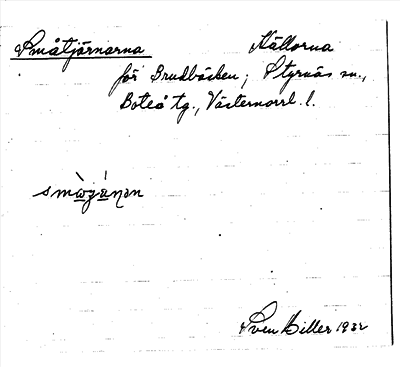 Småtjärnarna Källorna
för Brudbäcken; Styrnäs sn.,
Boteå tg., Västernorrl. l.
Sven Biller 1932